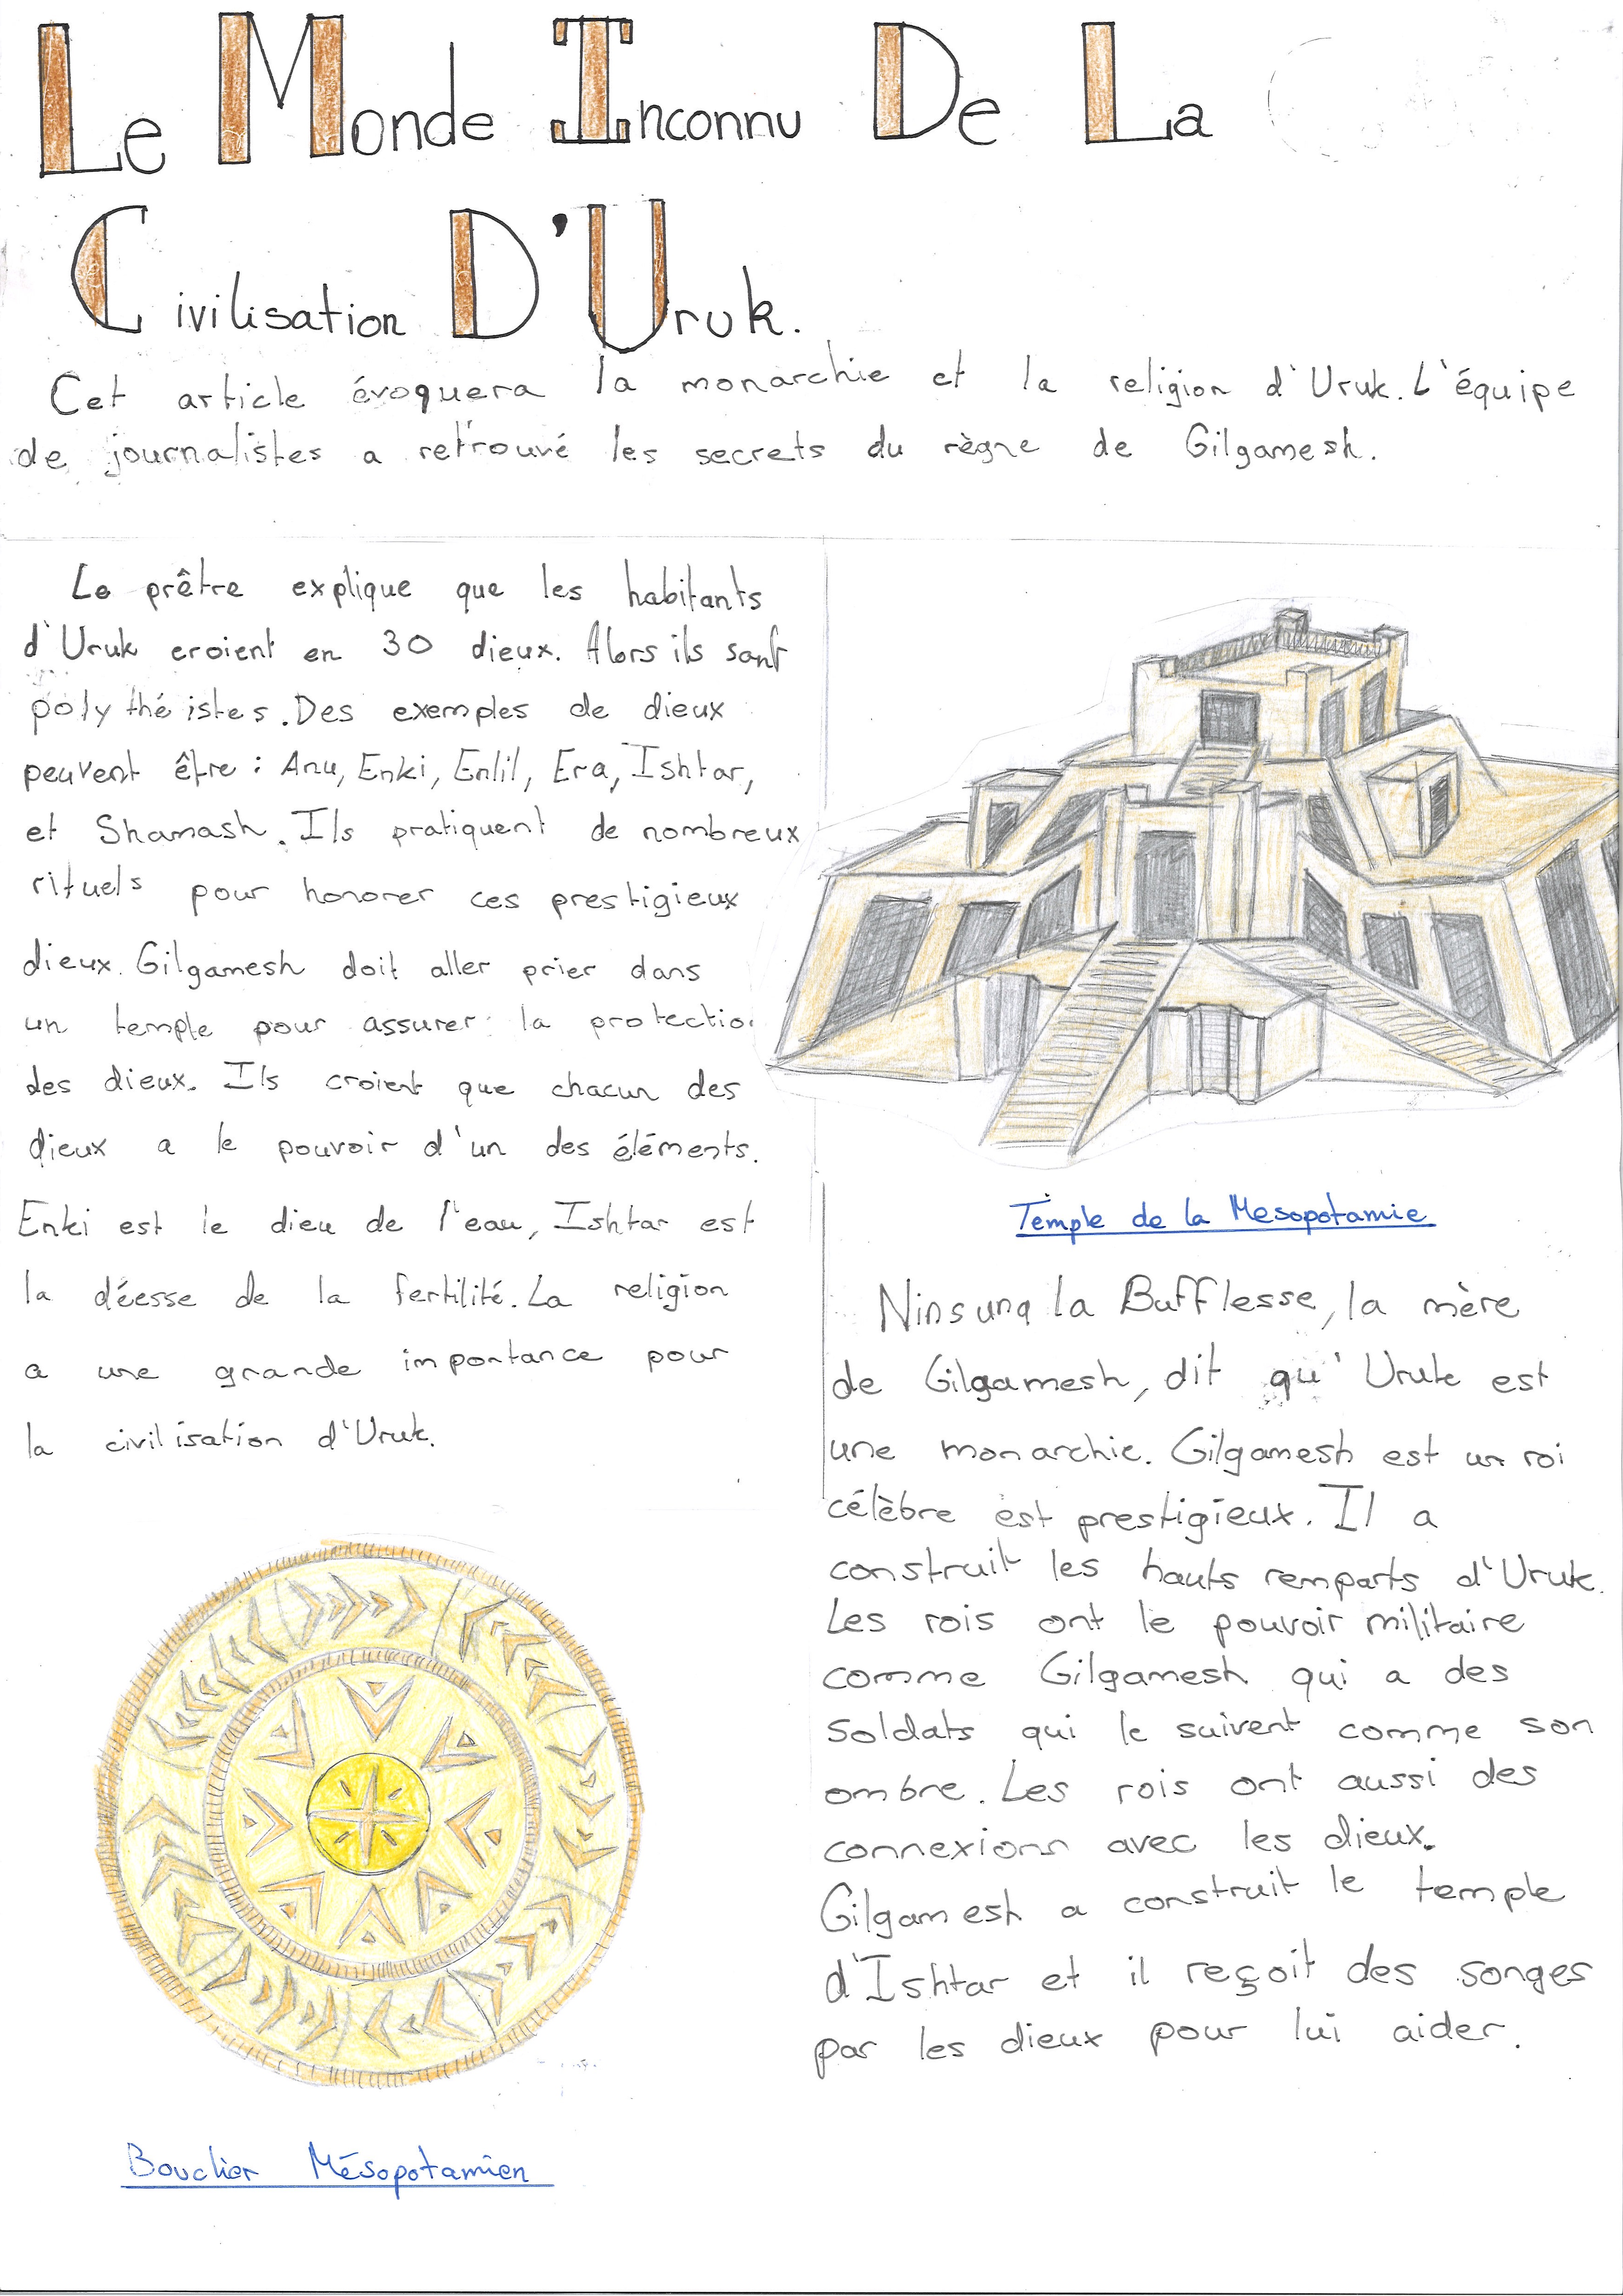 Le Monde Inconnu De La
Civilisation D'Uruk.
Cet article évoquera la monarchie et la religion d'Uruk. L'équipe
de journalistes a retrouvé les secrets du règne de Gilgamesh.
Le prêtre explique que les habitants
d'Uruk croient en 30 dieux. Alors ils sont
polythéistes. Des exemples de dieux
peuvent être : Anu, Enki, Enlil, Era, Ishtar,
et Shamash. Ils pratiquent de nombreux
rituels pour honorer ces prestigieux
dieux. Gilgamesh doit aller prier dans
un temple pour assurer la protection
des dieux. Ils croient que chacun des
dieux a le pouvoir d'un des éléments.
Enki est le dieu de l'eau, Ishtar est
la déesse de la fertilité. La religion
a une grande importance pour
la civilisation d'Uruk.
Bouclier Mésopotamien
Temple de la Mesopotamie
Ninsuna la Bufflesse, la mère
de Gilgamesh, dit qu'Uruk est
une monarchie. Gilgamesh est un roi
célèbre est prestigieux. Il a
construit les hauts remparts d'Uruk.
Les rois ont le pouvoir militaire
comme Gilgamesh qui a des
soldats qui le suivent comme son
ombre. Les rois ont aussi des
connexions avec les dieux.
Gilgamesh a construit le temple
d'Ishtar et il reçoit des songes
par les dieux pour lui aider.